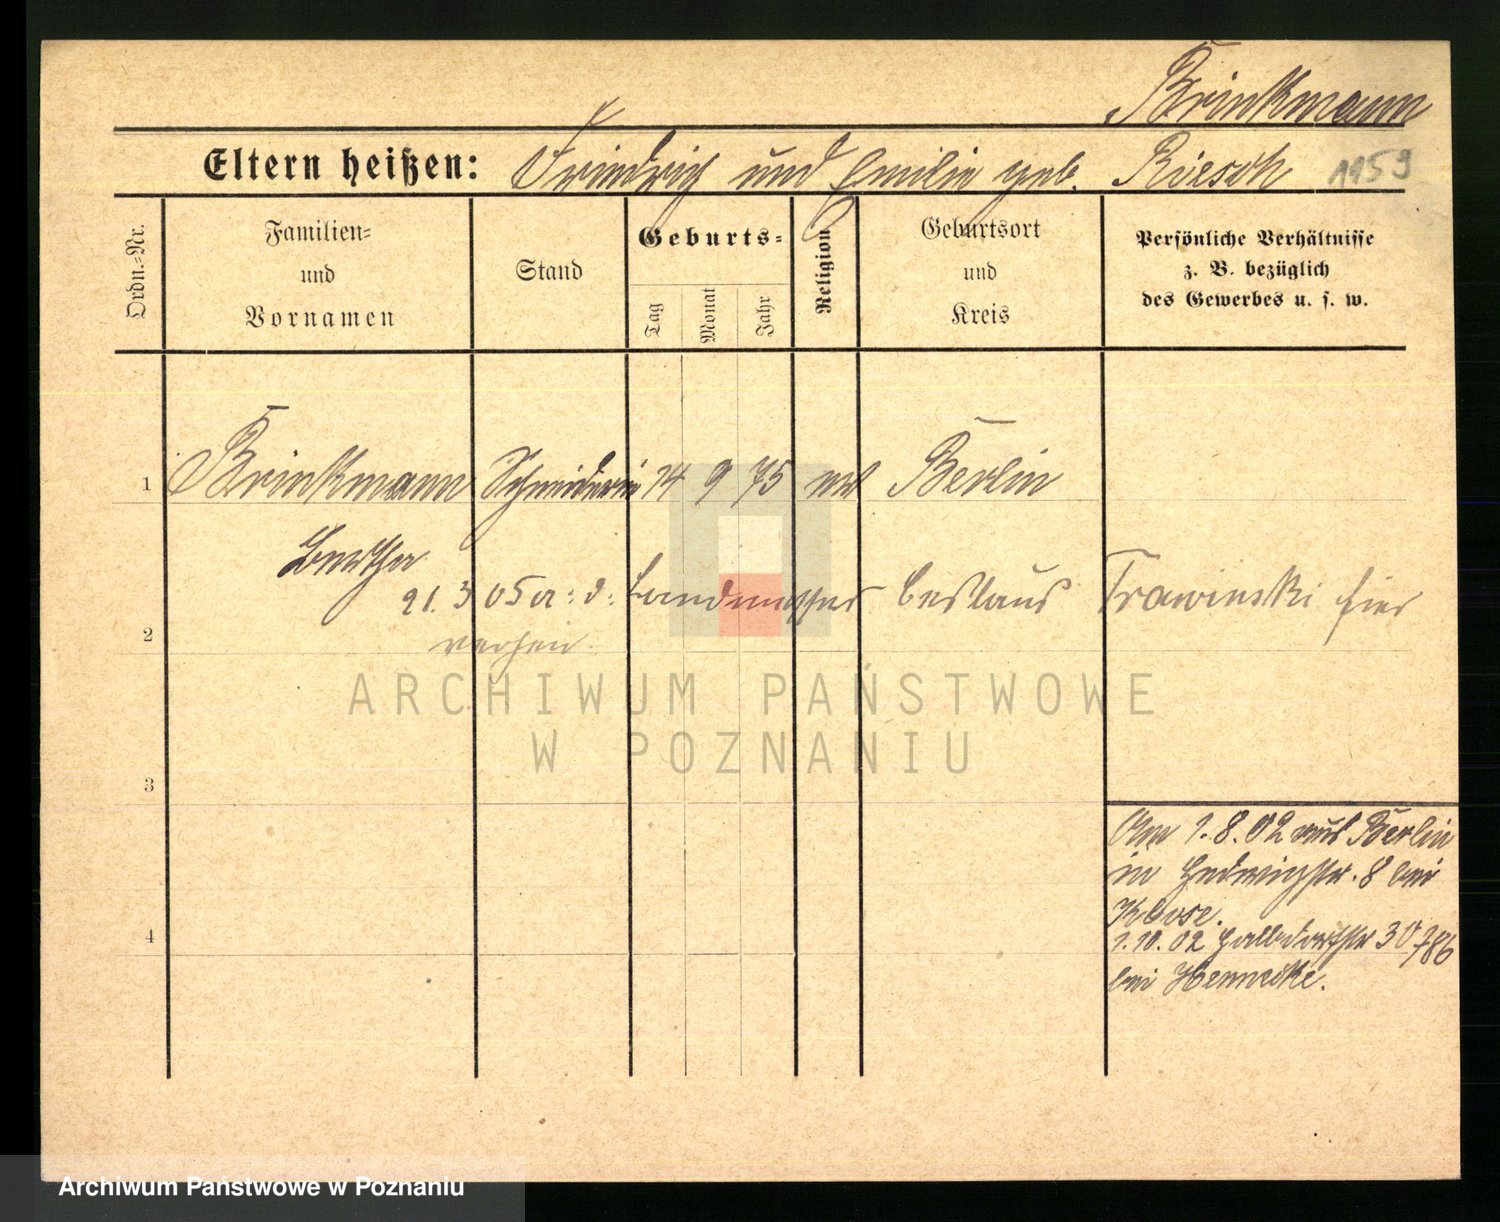 Brinkmann
Eltern heißen: Friedrich und Emilie geb. Riesch 1159
Ordn.-Nr.
Familien-
und
Vornamen
Stand
Geburts-
Tag
Monat
Jahr
Religion
Geburtsort
und
Kreis
Persönliche Verhältnisse
z. B. bezüglich
des Gewerbes u. s. w.
1 Brinkmann Schneiderin 14 9 75 ev Berlin
Bertha
21. 3 05 a. d. Landmesser Trawinski hier
2 verh
3
4
Am 1.8.02 aus Berlin
in Hedwigstr. 8 bei
Klose.
1.10.02 Halbdorfstr 30 786
bei Hennecke.
ARCHIWUM PAŃSTWOWE
W POZNANIU
Archiwum Państwowe w Poznaniu